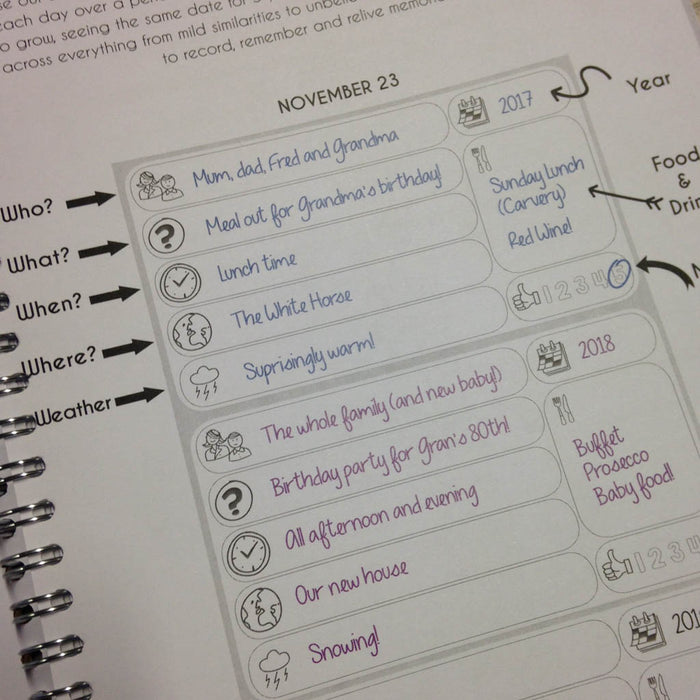 each day over a
o grow, seeing the same date for
across everything from mild similarities to
to record, remember and relive
NOVEMBER 23
Year
2017
Who?
Mum, dad, Fred and Grandma
Food
&
What?
Meal out for Grandma's birthday!
Sunday Lunch
(Carvery)
Red Wine!
When?
Lunch time
Where?
The White Horse
1 2 3 4 5
Weather
Suprisingly warm!
2018
The whole family (and new baby!)
Birthday party for Gran's 80th!
Buffet
Prosecco
Baby food!
All afternoon and evening
Our new house
1 2 3 4
Snowing!